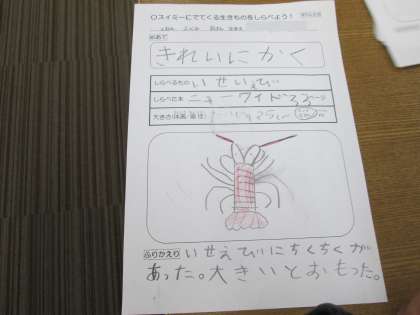 ○スイミーにでてくる生きものをしらべよう!
めあて
きれいにかく
しらべるもの いせいえび
しらべた本 ニューワイド
大きさ(体長・直径) 25cm
ふりかえり いせえびにちくちくが
あった。大きいとおもった。